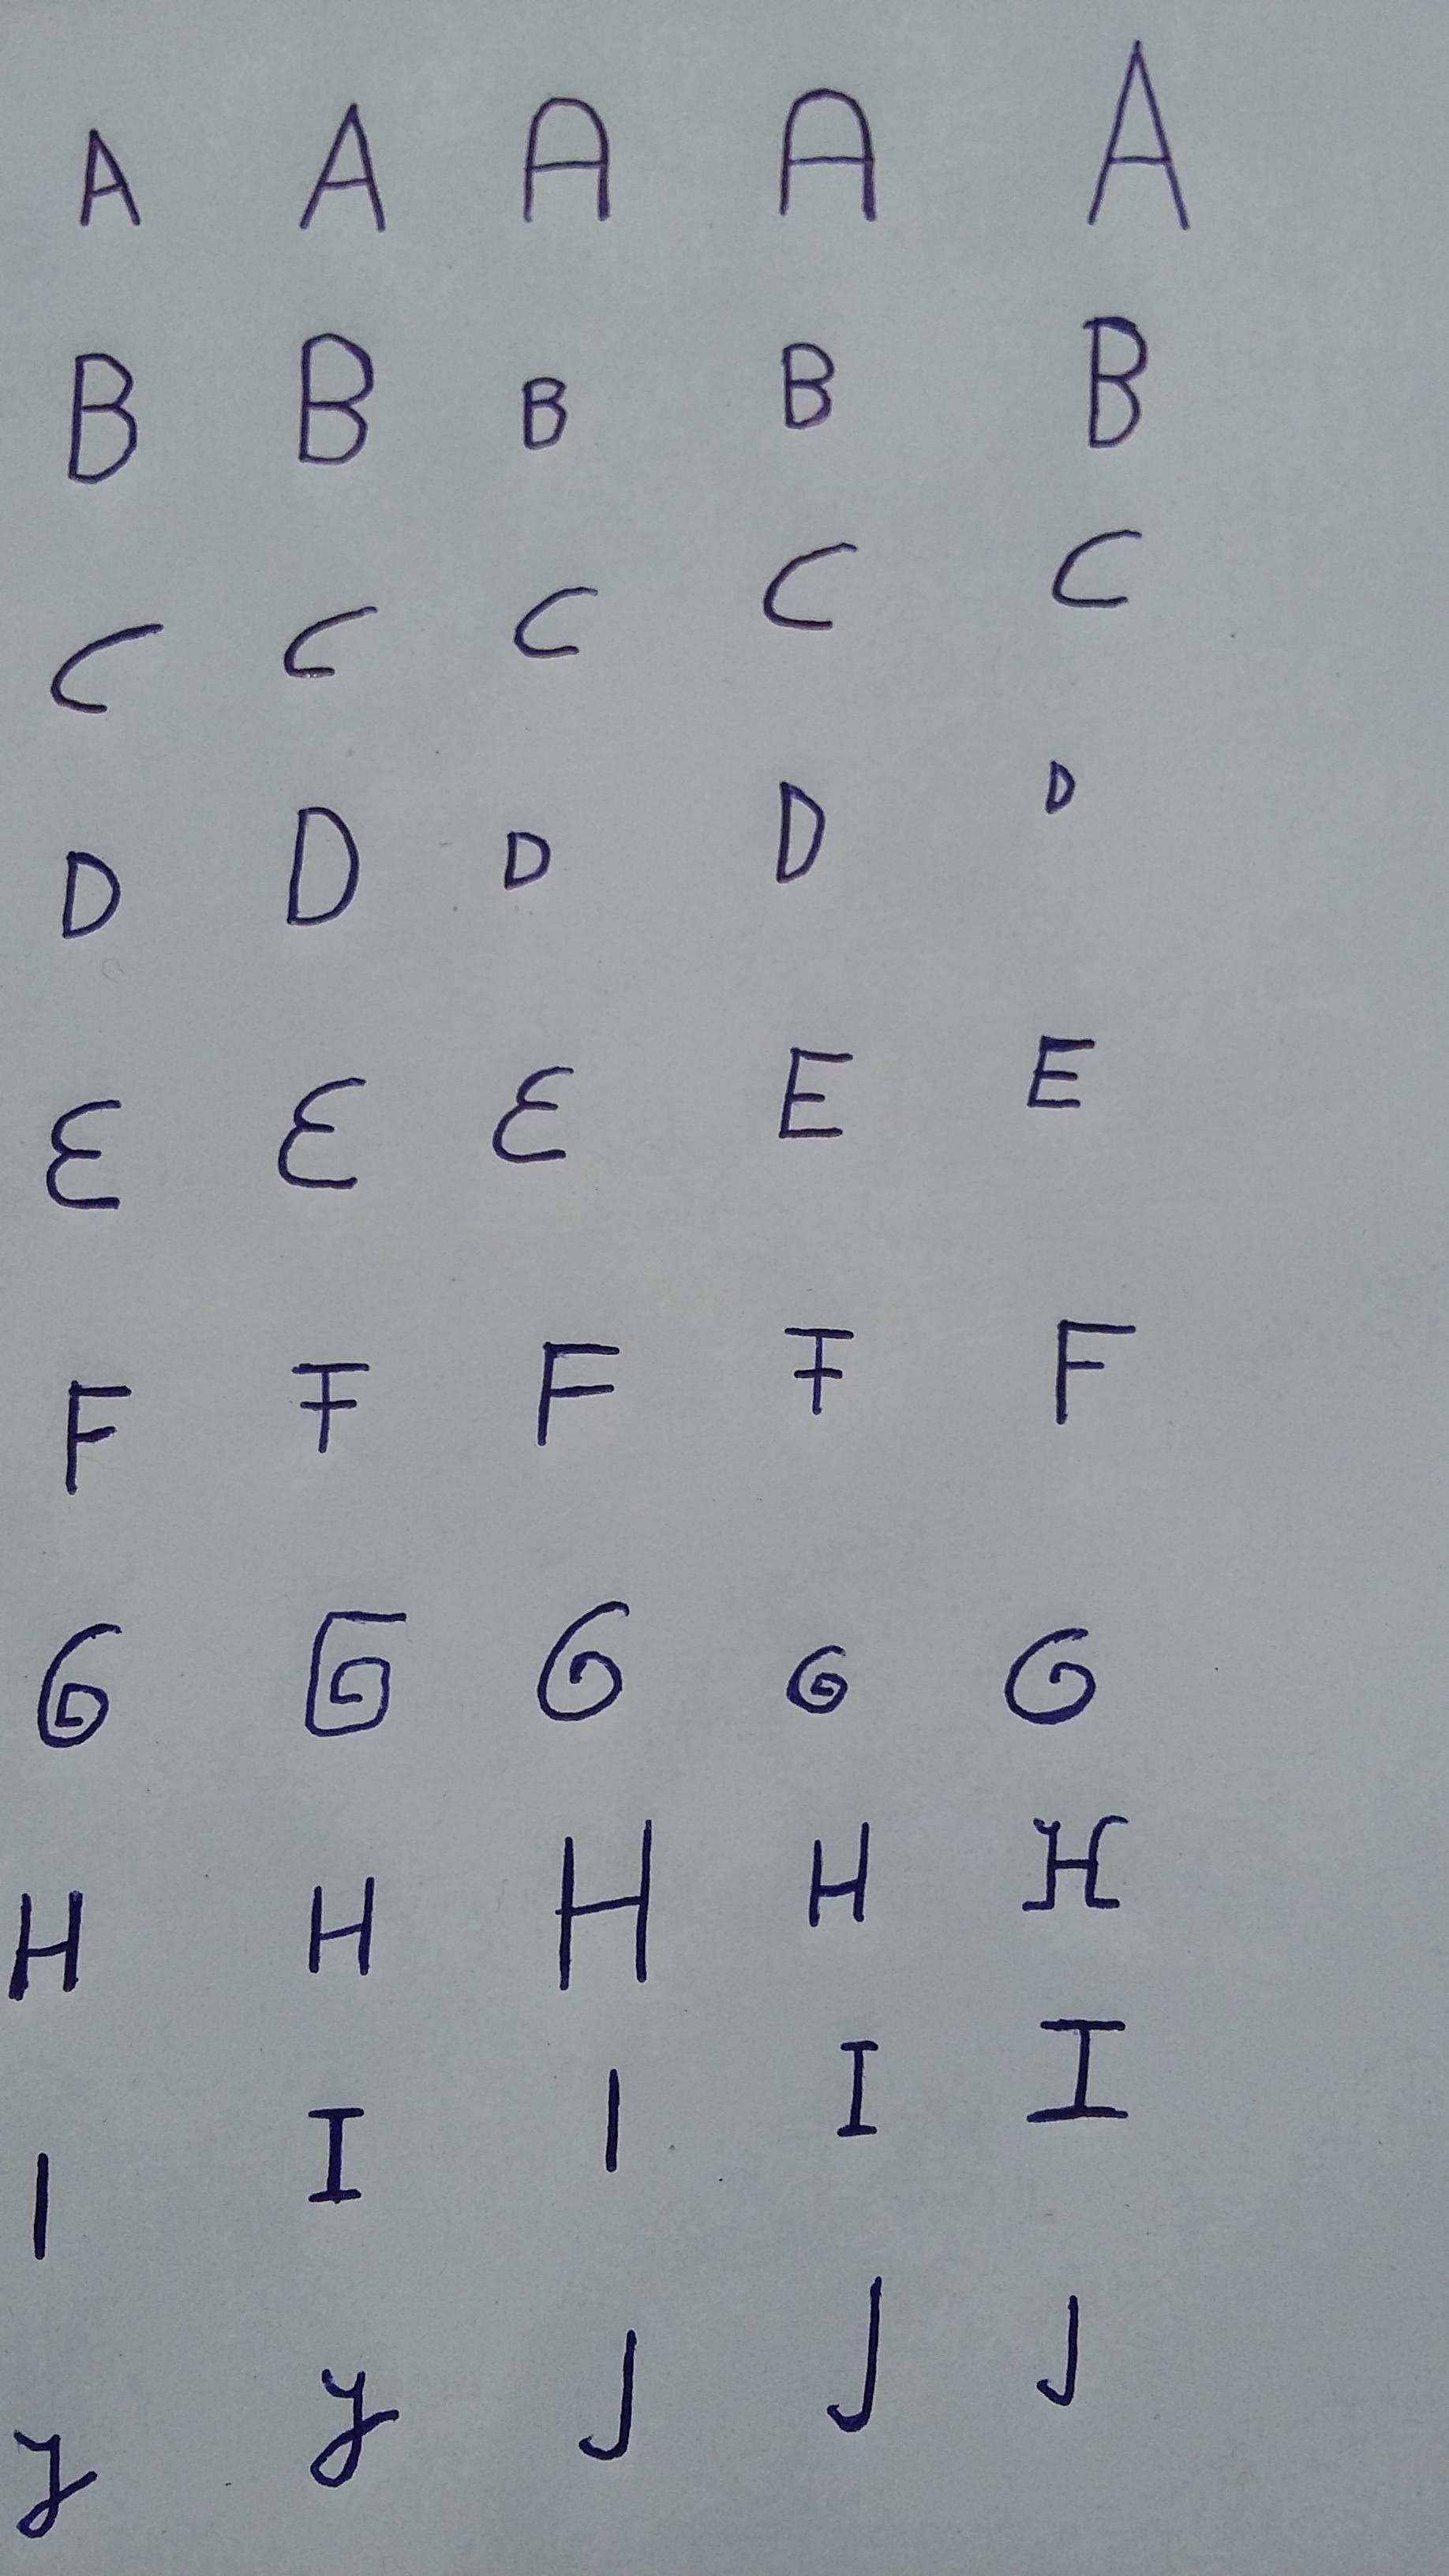 A A A A A
B B B B B
C C C C C
D D D D D
E E E E E
F F F F F
G G G G G
H H H H H
I I I I I
J J J J J